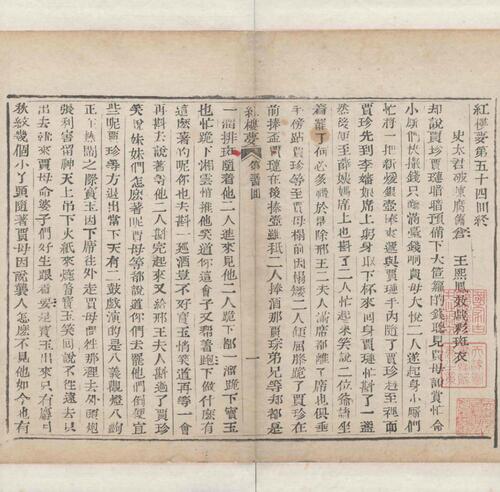 紅樓夢第五十四回終
史太君破陳腐舊套 王熙鳳效戲彩斑衣
却說賈珍賈璉暗暗預備下大笸籮的錢聽見賈母說賞忙命
小廝們快撒錢只聽滿臺錢响賈母大悅二人遂起身小廝們
忙將一把新煖銀壺捧來遞與賈璉手內隨了賈珍趨至裡面
賈珍先到李嬸娘席上躬身取下杯來回身賈璉忙斟了一盞
然後便至薛姨媽席上也斟了二人忙起來笑說二位爺請坐
着罷了何必多禮於是除邢王二夫人滿席都離了席也俱垂
手傍站賈珍等至賈母榻前因榻矮二人便屈膝跪了賈珍在
前捧盃賈璉在後捧壺雖秪二人捧酒那賈琮弟兄等却都是
紅樓夢 第五十四回 一
一溜排班隨着他二人進來見他二人跪下都一溜跪下寳玉
也忙跪下湘雲悄推他笑道你這會子又帮着跪下做什麽有
這麽着的呢你也去斟一巡酒豈不好寳玉悄笑道再等一會
再斟去說着等他二人斟完起來又給邢王二夫人斟過了賈珍
笑說妹妹們怎麽着呢賈母等都說道你們去罷他們倒便宜
些呢賈珍等方退出當下天有二鼓戲演的是八義觀燈八齣
正在熱鬧之際寳玉因下席往外走賈母問他往那裡去外頭炮
張利害留神天上吊下火紙來燒着寳玉笑回說不往遠去只
出去就來賈母命婆子們好生跟着于是寳玉出來只有麝月
秋紋幾個小丫頭隨着賈母因說襲人怎麽不見他如今也有